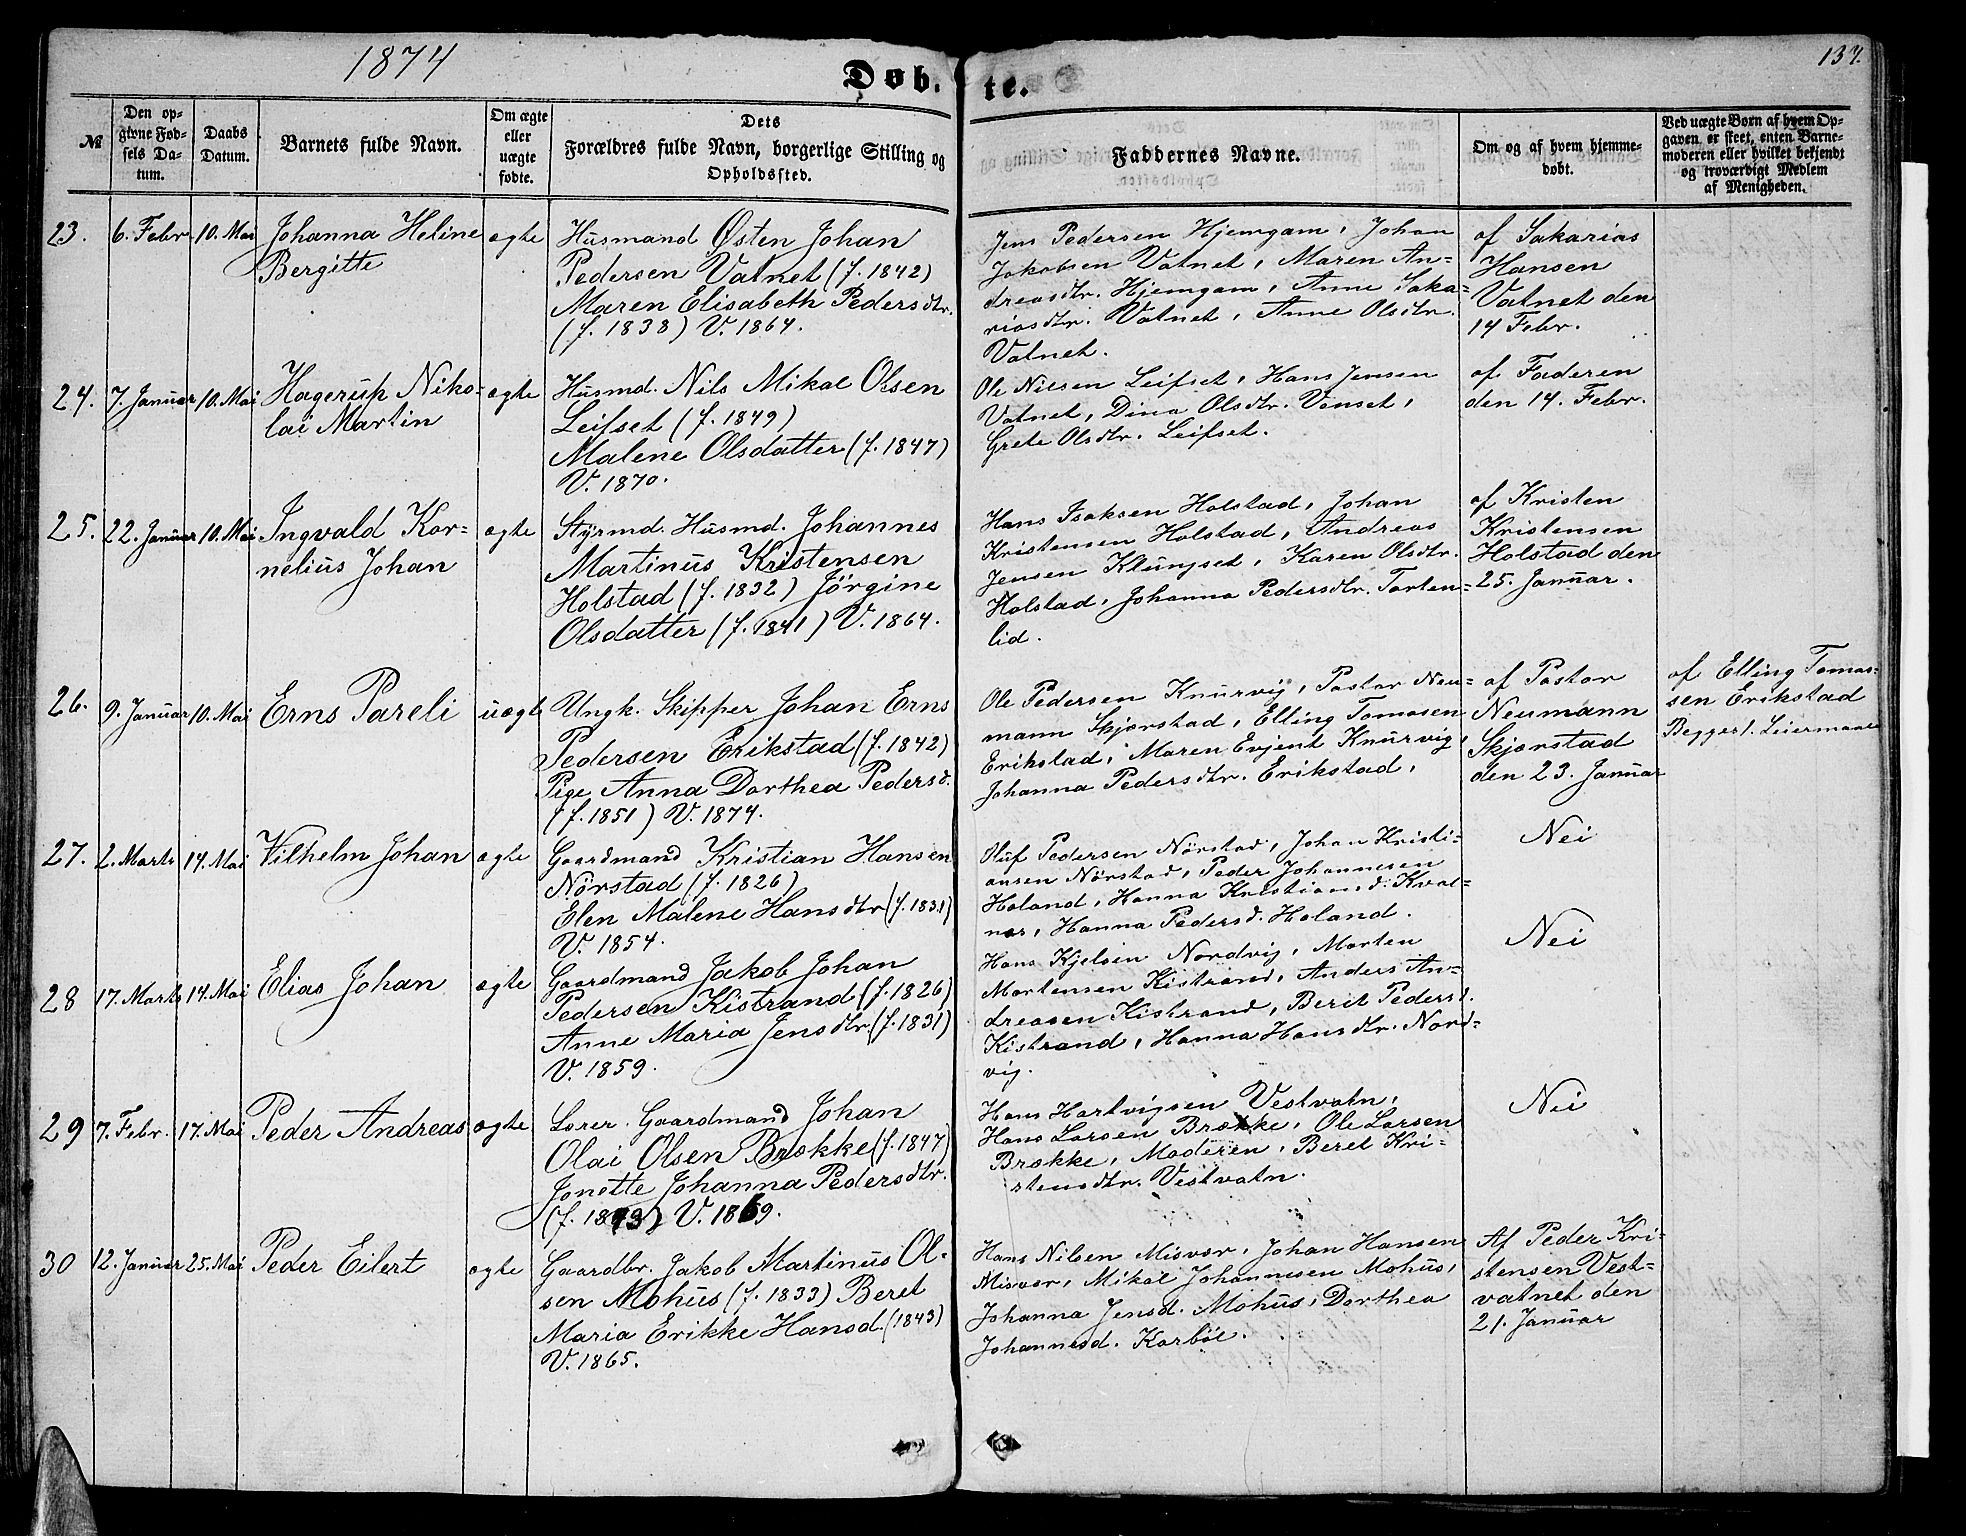 1874
137.
Døb.
te.
№
Den op-
givne Fød-
sels Da-
tum.
Daabs
Datum.
Barnets fulde Navn.
Om ægte
eller
uægte
fødte.
Dets
Forældres fulde Navn, borgerlige Stilling og
Opholdssted.
Faddernes Navne.
Om og af hvem hjemme-
døbt.
Ved uægte Børn af hvem Op-
gaven er skeet, enten Barne-
moderen eller hvilket bekjendt
og troværdigt Medlem
af Menigheden.
23.
6. Febr.
10. Mai
Johanna Heline
Bergitte
ægte
Husmand Østen Johan
Pedersen Vatnet (f. 1842)
Maren Elisabeth Pedersdtr.
(f. 1838) V. 1864.
Jens Pedersen Hjemgam, Johan
Jakobsen Vatnet, Maren An=
dreasdtr. Hjemgam, Anne Saka=
riasdtr. Vatnet, Anne Olsdtr.
Vatnet.
af Sakarias
Hansen
Vatnet den
14 Febr.
24.
7. Januar
10. Mai
Hagerup Niko=
lai Martin
ægte
Husmd. Nils Mikal Olsen
Leifset (f. 1849)
Malene Olsdatter (f. 1847)
V. 1870.
Ole Nilsen Leifset, Hans Jensen
Vatnet, Dina Olsdtr. Venset,
Grete Olsdtr. Leifset.
af Faderen
den 14. Febr.
25.
22. Januar
10. Mai
Ingvald Kor=
nelius Johan
ægte
Styrmd. Husmd. Johannes
Martinus Kristensen
Holstad (f. 1832) Jörgine
Olsdatter (f. 1841) V. 1864.
Hans Isaksen Holstad, Johan
Kristensen Holstad, Andreas
Jensen Klungset, Karen Olsdtr.
Holstad, Johanna Pedersdtr. Torten=
lid.
af Kristen
Kristensen
Holstad den
25. Januar.
26.
9. Januar
10. Mai
Erns Pareli
uægte
Ungk. Skipper Johan Erns
Pedersen Erikstad (f. 1842)
Pige Anna Dorthea Pedersd.
(f. 1851) V. 1874.
Ole Pedersen Knurvig, Pastor Neu=
mann Skjørstad, Elling Tomasen
Erikstad, Maren Evjent Knurvig,
Johanna Pedersdtr. Erikstad,
af Pastor
Neumann
Skjørstad
den 23. Januar
af Elling Tomas=
sen Erikstad
Begges 1. Leiermaal
27.
2. Marts
14. Mai
Vilhelm Johan
ægte
Gaardmand Kristian Hansen
Nörstad (f. 1826)
Elen Malene Hansdtr (f. 1831)
V. 1854.
Oluf Pedersen Nörstad, Johan Kristi=
ansen Nörstad, Peder Johannesen
Holand, Hanna Kristiansd. Kval=
nes, Hanna Pedersd. Holand.
Nei
28
17. Marts
14. Mai
Elias Johan
ægte
Gaardmand Jakob Johan
Pedersen Kistrand (f. 1826)
Anne Maria Jensdtr. (f. 1831)
V. 1859.
Hans Kjelsen Nordvig, Morten
Mortensen Kistrand, Anders An=
dreasen Kistrand, Berit Pedersd.
Kistrand, Hanna Hansdtr. Nord=
vig.
Nei
29
7. Febr.
17. Mai
Peder Andreas
ægte
Lærer. Gaardmand Johan
Olai Olsen Brække (f. 1847)
Jonette Johanna Pedersdtr.
(f. 1843) V. 1869.
Hans Hartvigsen Vestvatn,
Hans Larsen Brække, Ole Larsen
Brække, Moderen, Beret Kri=
stensdtr. Vestvatn.
Nei
30
12. Januar
25. Mai
Peder Eilert
ægte
Gaardbr. Jakob Martinus Ol=
sen Mohus (f. 1833) Beret
Maria Erikke Hansd. (1843)
V. 1865.
Hans Nilsen Misvær, Johan Hansen
Misvær, Mikal Johannesen Mohus,
Johanna Jensd. Mohus, Dorthea
Johannesd. Karbøe.
Af Peder Kri=
stensen Vest=
vatnet den
21. Januar